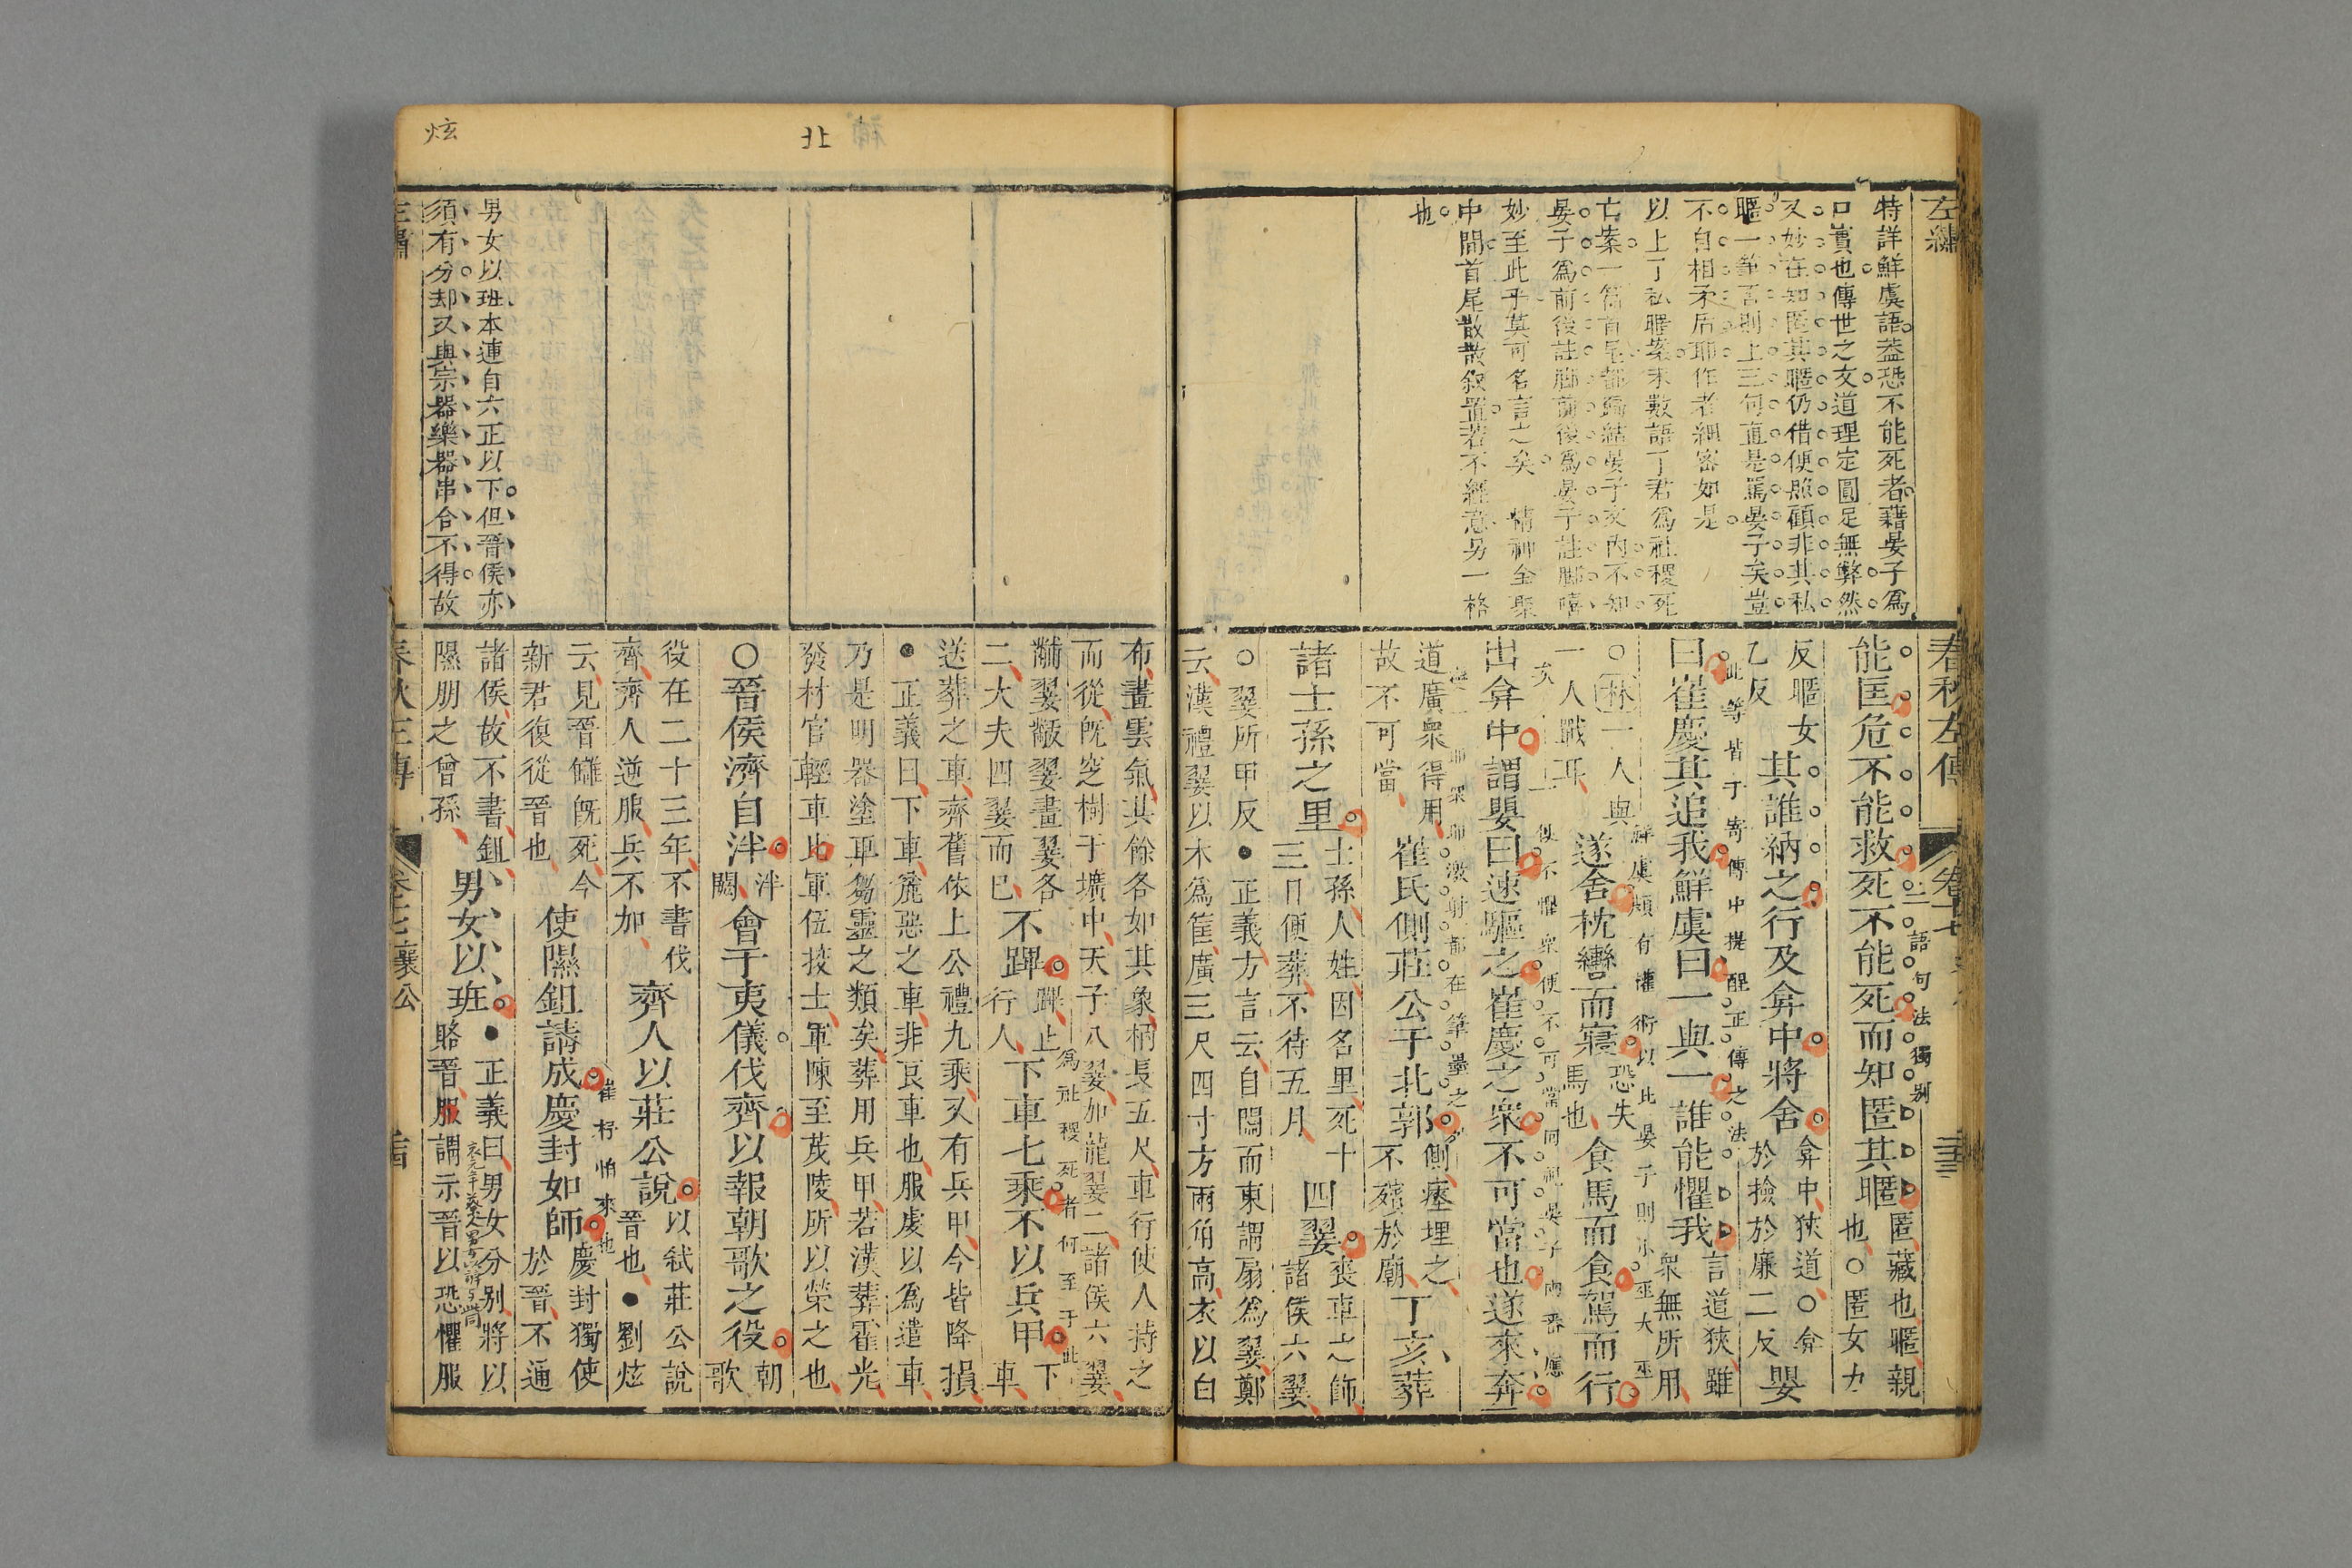 左繡
特詳鮮虞語葢恐不能死者藉晏子爲
口實也傳世之文道理定圓足無弊然
又妙在知匿其暱仍借便照顧非其私
暱一筆否則上三句直是罵晏子矣豈
不自相矛盾耶作者細密如是
以上了私暱案末數語了君爲社稷死
亡案一篇首尾都歸結晏子文内不知
晏子爲前後註脚前後爲晏子註脚嘻
妙至此乎莫可名言之矣 精神全聚
中間首尾散散叙置若不經意另一格
也
春秋左傳
卷十七
能匡危不能救死不能死而知匿其暱
匿藏也暱親
也○匿女力
二語句法獨别
反暱女
乙反
其誰納之行及弇中將舍
弇中狹道○弇
於撿於廉二反
嬰
此等皆于寄傳中提醒正傳之法
曰崔慶其追我鮮虞曰一與一誰能懼我
言道狹雖
衆無所用
鮮虞頗有權術以此晏子則小巫大巫
○林一人與
一人戰耳
遂舍枕轡而寢
恐失
馬也
食馬而食駕而行
出弇中謂嬰曰速驅之崔慶之衆不可當也遂來奔
道廣衆得用
故不可當
崔氏側莊公于北郭
側瘞埋之
不殯於廟
丁亥葬
諸士孫之里
士孫人姓因名里死十
三日便葬不待五月
四翣
喪車之飾
諸侯六翣
○翣所甲反●正義方言云自關而東謂扇爲翣鄭
云漢禮翣以木爲筐廣三尺四寸方兩角高衣以白
布畫雲氣其餘各如其象柄長五尺車行使人持之
而從既窆樹于壙中天子八翣加龍翣二諸侯六翣
黼翣黻翣畫翣各
二大夫四翣而已
不蹕
蹕止
行人
下車七乘不以兵甲
下
車
爲社稷死者何至于此
送葬之車齊舊依上公禮九乘又有兵甲今皆降損
●正義曰下車麄惡之車非哀車也服虔以爲遣車
乃是明器塗車芻靈之類矣葬用兵甲若漢葬霍光
發材官輕車北軍伍挍士軍陳至茂陵所以榮之也
○晉侯濟自泮
泮
闕
會于夷儀伐齊以報朝歌之役
朝
歌
役在二十三年不書伐
齊齊人逆服兵不加
齊人以莊公說
以弒莊公說
晉也●劉炫
崔杼怕來也
云見晉讎既死今
新君復從晉也
使隰鉏請成慶封如師
慶封獨使
於晉不通
諸侯故不書鉏
隰朋之曾孫
男女以班
●正義曰男女分别將以
賂晉服謂示晉以恐懼服
男女以班本連自六正以下但晉侯亦
須有分却又與宗器樂器串合不得故
襄公
北
炫